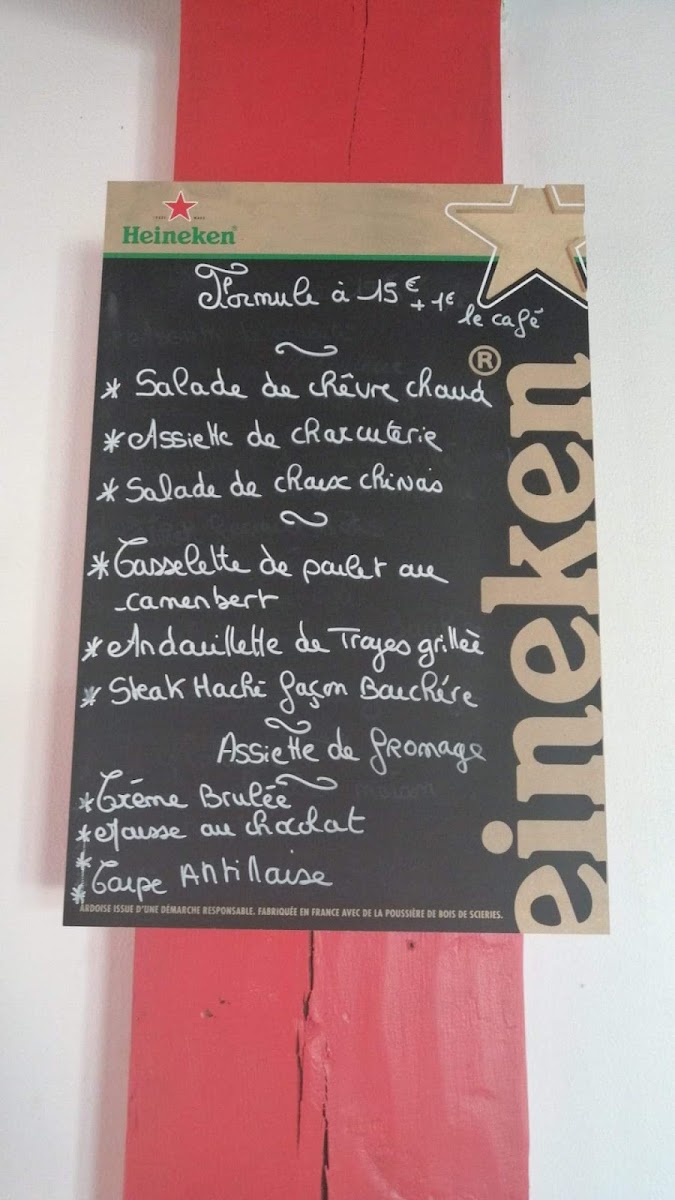 Heineken
Formule à 15€ + 1€ le café
* Salade de chêvre chaud
* Assiette de charcuterie
* Salade de chaux chinois
* Casselette de poulet au
camenbert
* Andouillette de Troyes grillée
* Steak Haché façon Bouchére
Assiette de fromage
* Créme Brulée
* Mousse au chocolat
*
* Coupe Antillaise
ARDOISE ISSUE D'UNE DÉMARCHE RESPONSABLE. FABRIQUÉE EN FRANCE AVEC DE LA POUSSIÈRE DE BOIS DE SCIERIES.
eineken®